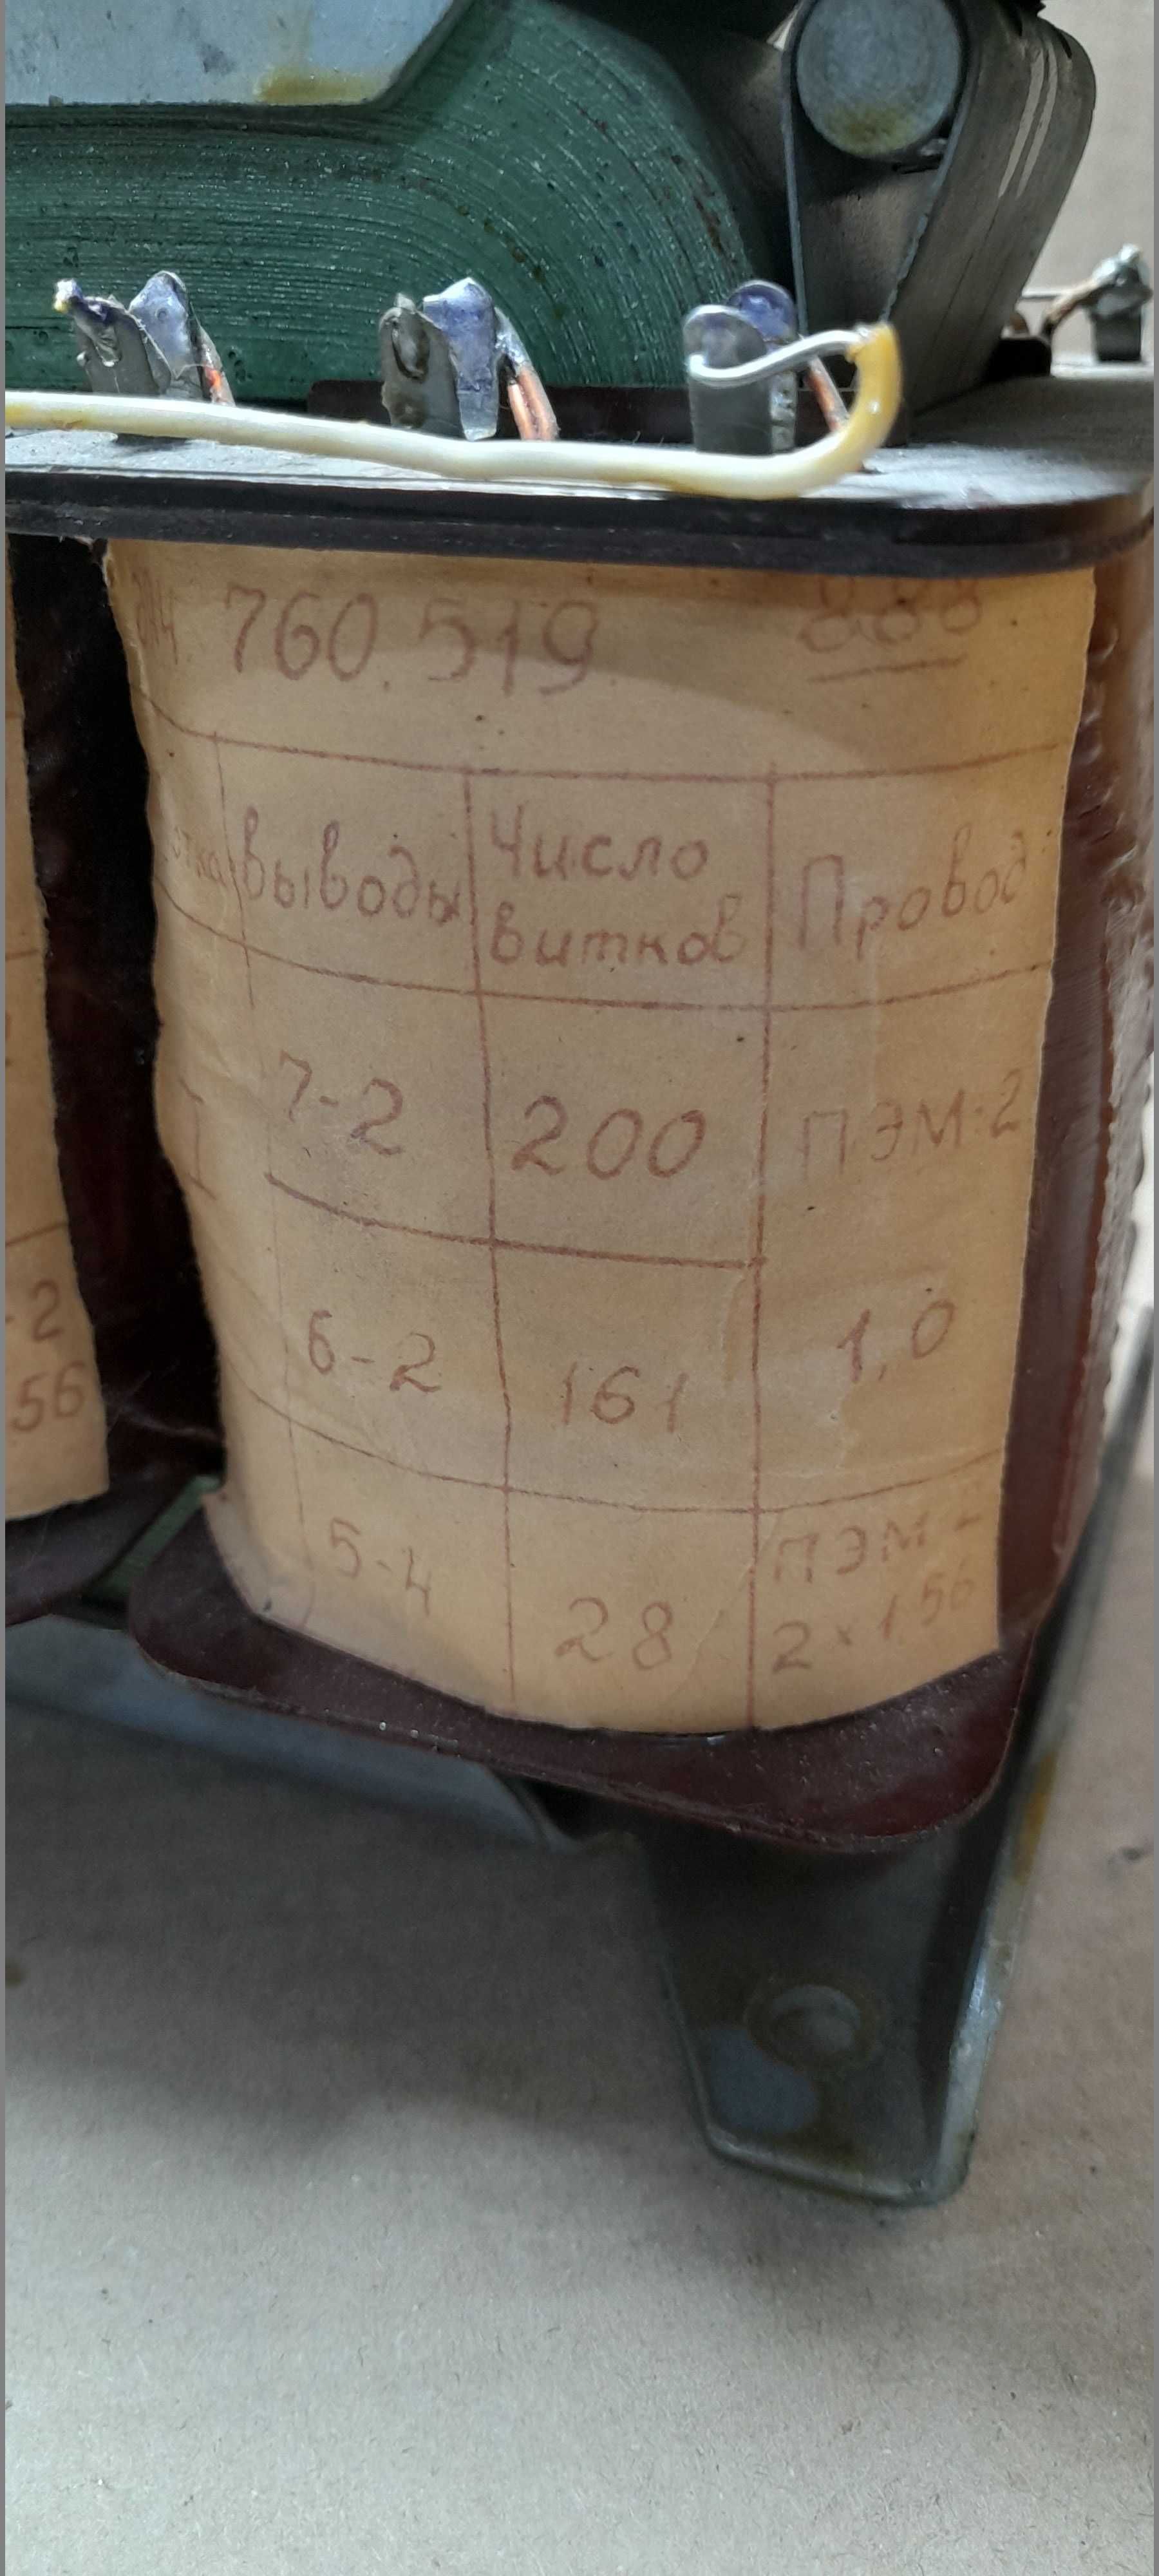 760.519 888
Выводы Число витков Провод
I 7-2 200 ПЭМ-2
6-2 161 1,0
5-4 28 ПЭМ-2
2×1.56
-2
56